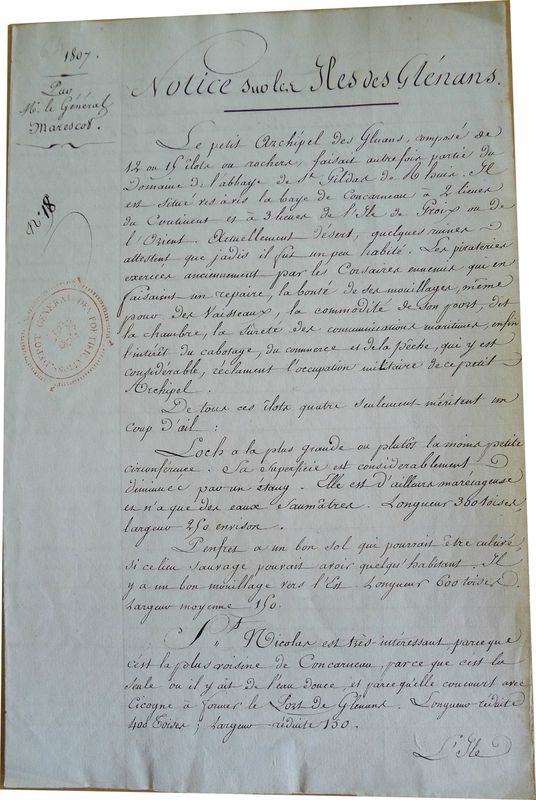 1807.
Par
Mr. le Général
Marescot.
N° 18
DEPOT GENERAL DES FORTIFICATIONS
Notice sur les Iles des Glénans.
Le petit Archipel des Gluans, composé de
12 ou 15 ilots ou rochers, faisait autrefois partie du
Domaine de l'abbaye de St. Gildas de Rhuis. Il
est situé vis à vis la baye de Concarneau à 2 lieues
du Continent et à 3 lieues de l'Ile de Groix ou de
l'Orient. Actuellement désert, quelques ruines
attestent que jadis il fut un peu habité. Les pirateries
exercées anciennement par les Corsaires ennemis qui en
faisaient un repaire, la bonté de ses mouillages, même
pour des Vaisseaux, la commodité de son port, dit
la chambre, la sûreté des communications maritimes, enfin
l'intérêt du cabotage, du commerce et de la Pêche, qui y est
considérable, réclament l'occupation militaire de ce petit
Archipel.
De tous ces îlots quatre seulement méritent un
coup d'œil :
Loch a la plus grande ou plutôt la moins petite
circonférence. Sa Superficie est considérablement
diminuée par un étang. Elle est d'ailleurs marécageuse
et n'a que des eaux saumâtres. Longueur 300 toises,
largeur 250 environ.
Penfret a un bon sol qui pourrait être cultivé,
si ce lieu sauvage pouvait avoir quelqu'habitant. Il
y a un bon mouillage vers l'Est. Longueur 600 toises.
Largeur moyenne 150.
St. Nicolas est très-intéressant, parce que
c'est la plus voisine de Concarneau, parce que c'est la
seule ou il y ait de l'eau douce, et parce qu'elle concourt avec
Cicogne à former le Port de Glénans. Longueur réduite
400 Toises; Largeur réduite 130.
L'Ile